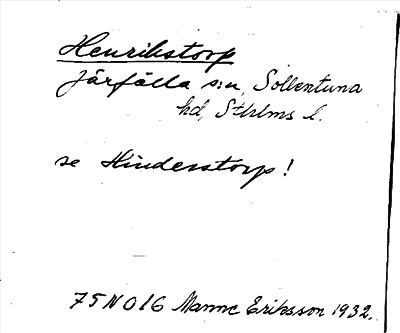 Henrikstorp
Järfälla s:n, Sollentuna
hd, Sthlms l.
se Hinderstorp!
75 N O 16 Manne Eriksson 1932.